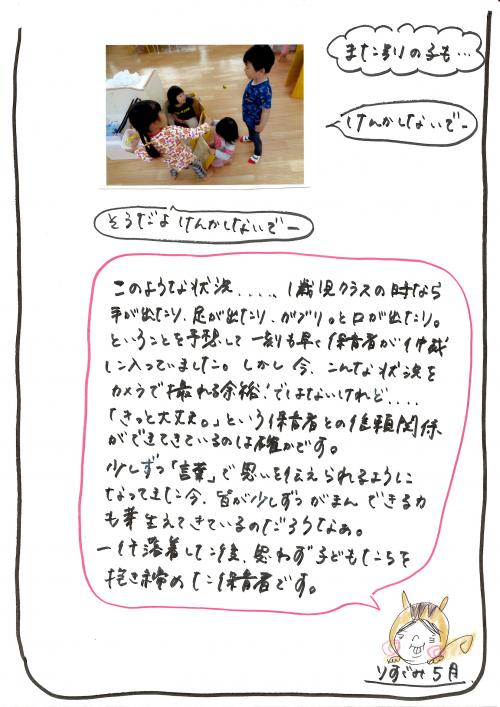 また別りの子も…
けんかしないでー
そうだよ けんかしないでー
このような状況.....、1歳児クラスの時なら
手が出たり、足が出たり、がブリ。と口が出たり。
ということを予想して一刻も早く保育者が仲裁
に入っていました。しかし今、こんな状況を
カメラで撮れる余裕!ではないけれど....
「きっと大丈夫。」という保育者との信頼関係
ができてきているのは確かです。
少しずつ「言葉」で思いを伝えられるように
なってきた今、皆が少しずつがまんできる力
も芽生えてきているのだろうなぁ。
一件落着した後、思わず子どもたちを
抱き締めた保育者です。
りすぐみ 5月